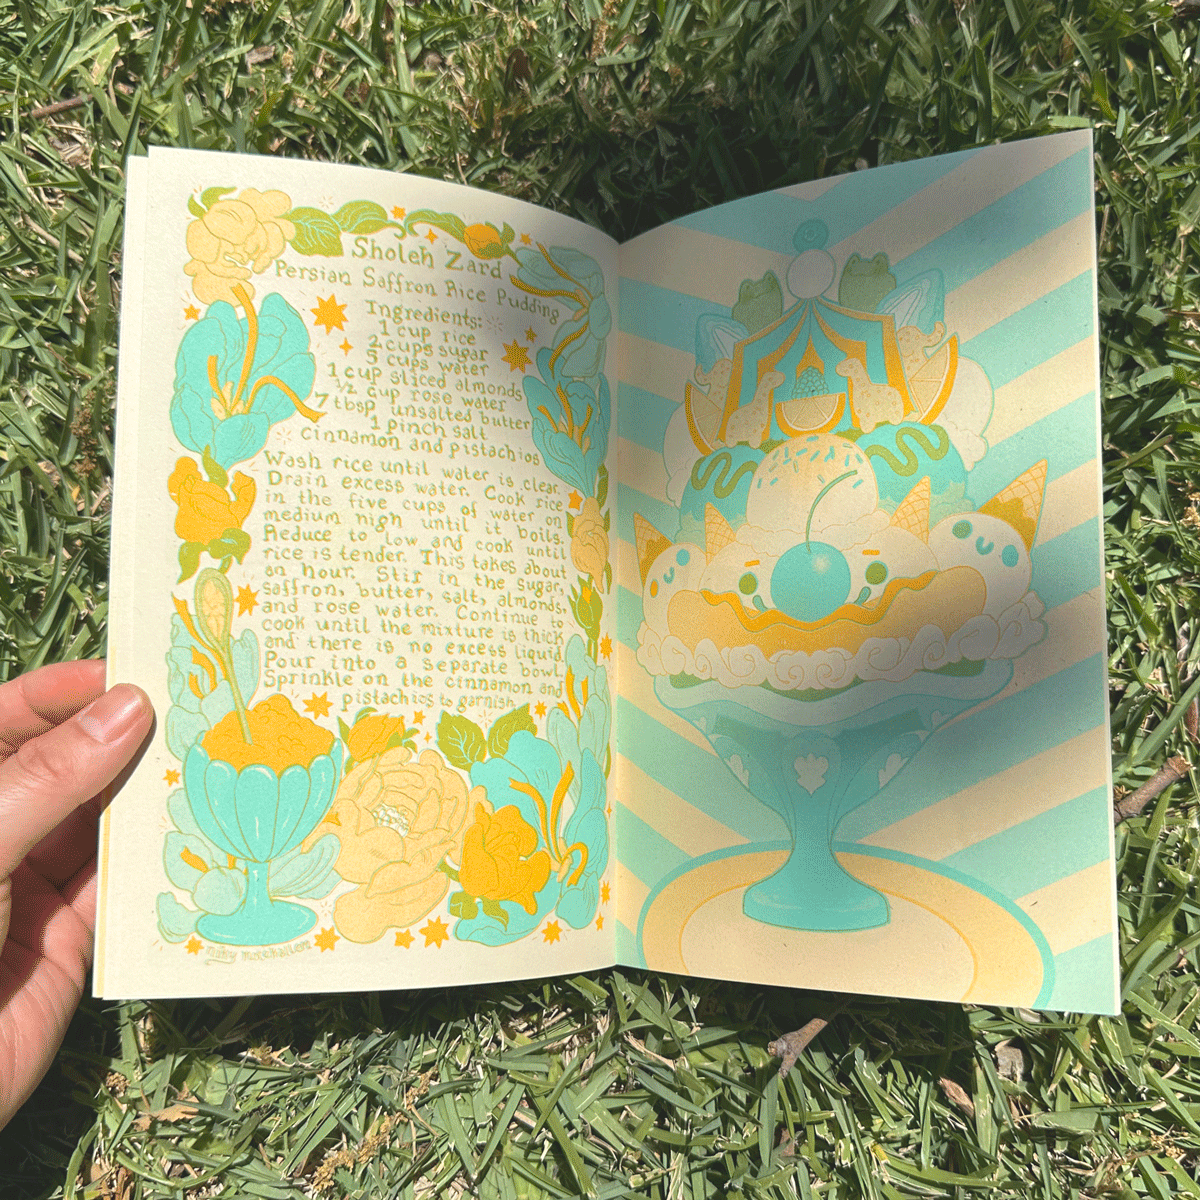 Sholeh Zard
Persian Saffron Rice Pudding
Ingredients:
1 cup rice
2 cups sugar
5 cups water
1 cup sliced almonds
½ cup rose water
7 tbsp unsalted butter
1 pinch salt
cinnamon and pistachios
Wash rice until water is clear.
Drain excess water. Cook rice
in the five cups of water on
medium high until it boils.
Reduce to low and cook until
rice is tender. This takes about
an hour. Stir in the sugar,
saffron, butter, salt, almonds,
and rose water. Continue to
cook until the mixture is thick
and there is no excess liquid.
Pour into a separate bowl.
Sprinkle on the cinnamon and
pistachios to garnish.